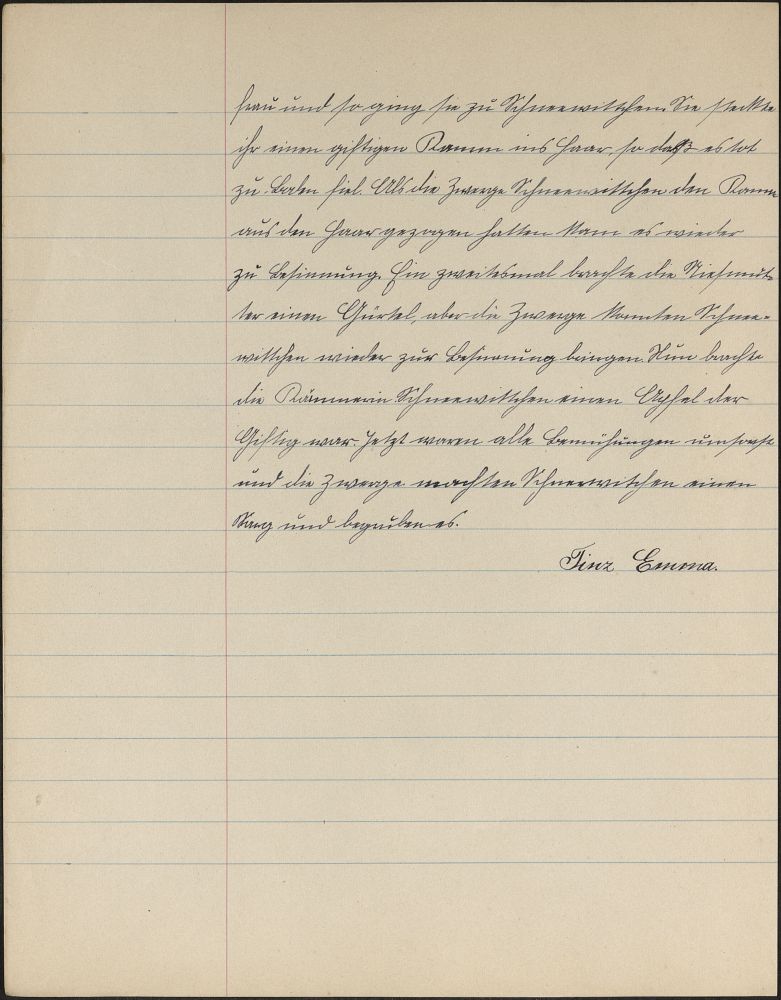 frau und so ging sie zu Schneewittchen. Sie steckte
ihr einen giftigen Kamm ins Haar, so daß es tot
zu Boden fiel. Als die Zwerge Schneewittchen den Kamm
aus den Haar gezogen hatten kam es wieder
zu Besinnung. Ein zweitesmal brachte die Stiefmut-
ter einen Gürtel, aber die Zwerge konnten Schnee-
wittchen wieder zur Besinnung bringen. Nun brachte
die Krämerin Schneewittchen einen Apfel der
Giftig war. Jetzt waren alle Bemühungen umsonst
und die Zwerge machten Schneewitchen einen
Sarg und begruben es.
Tinz Emma.